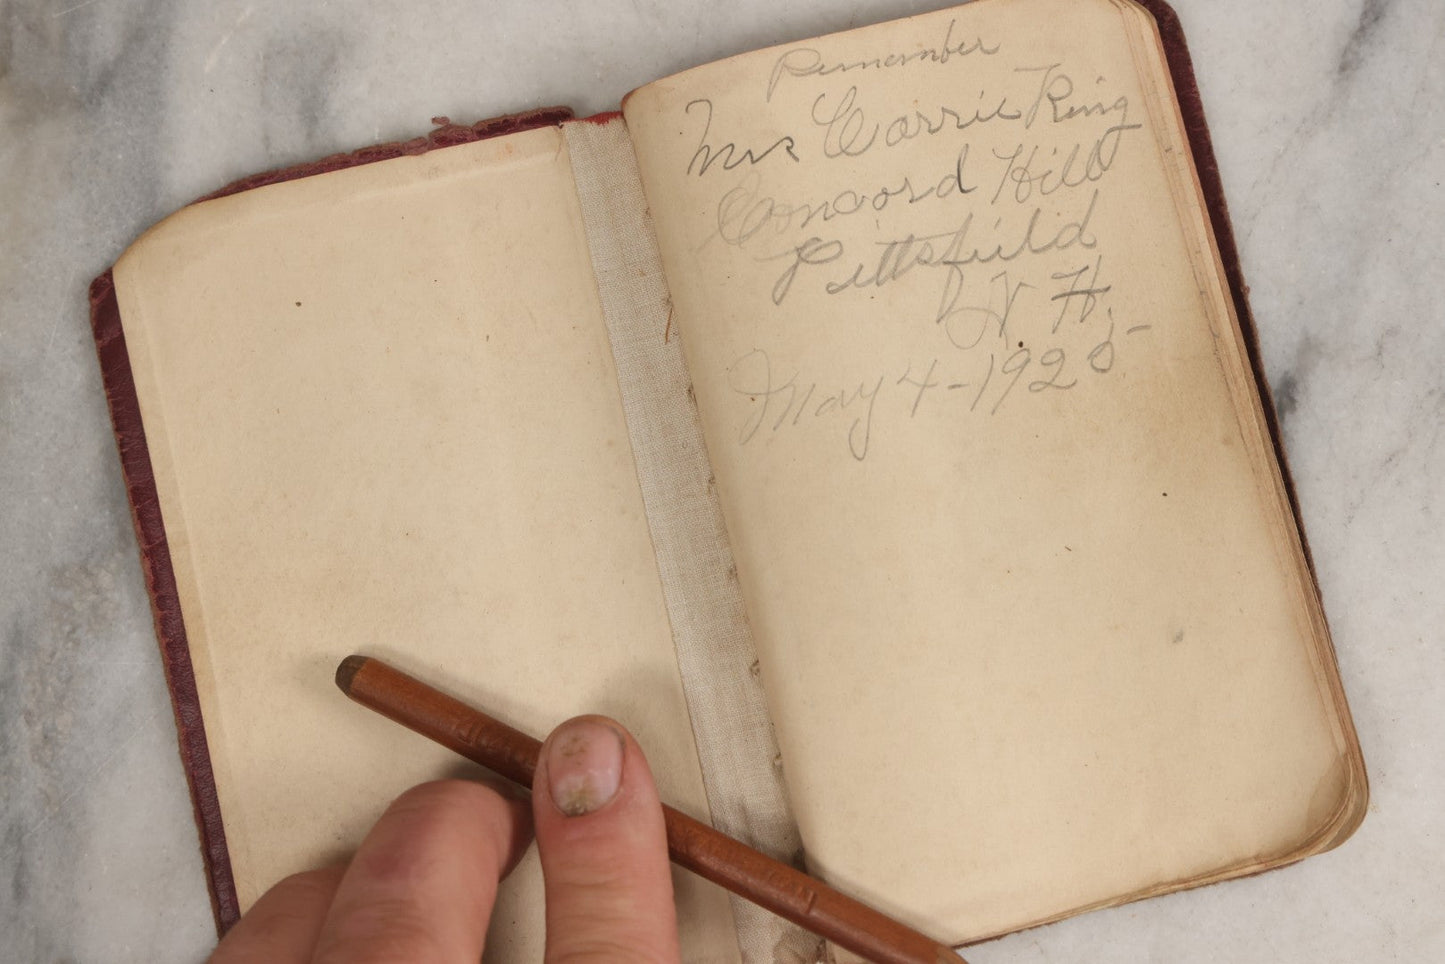 Remember
Mrs Carrie King
Concord Hill
Pittsfield
N H.
May 4-1925